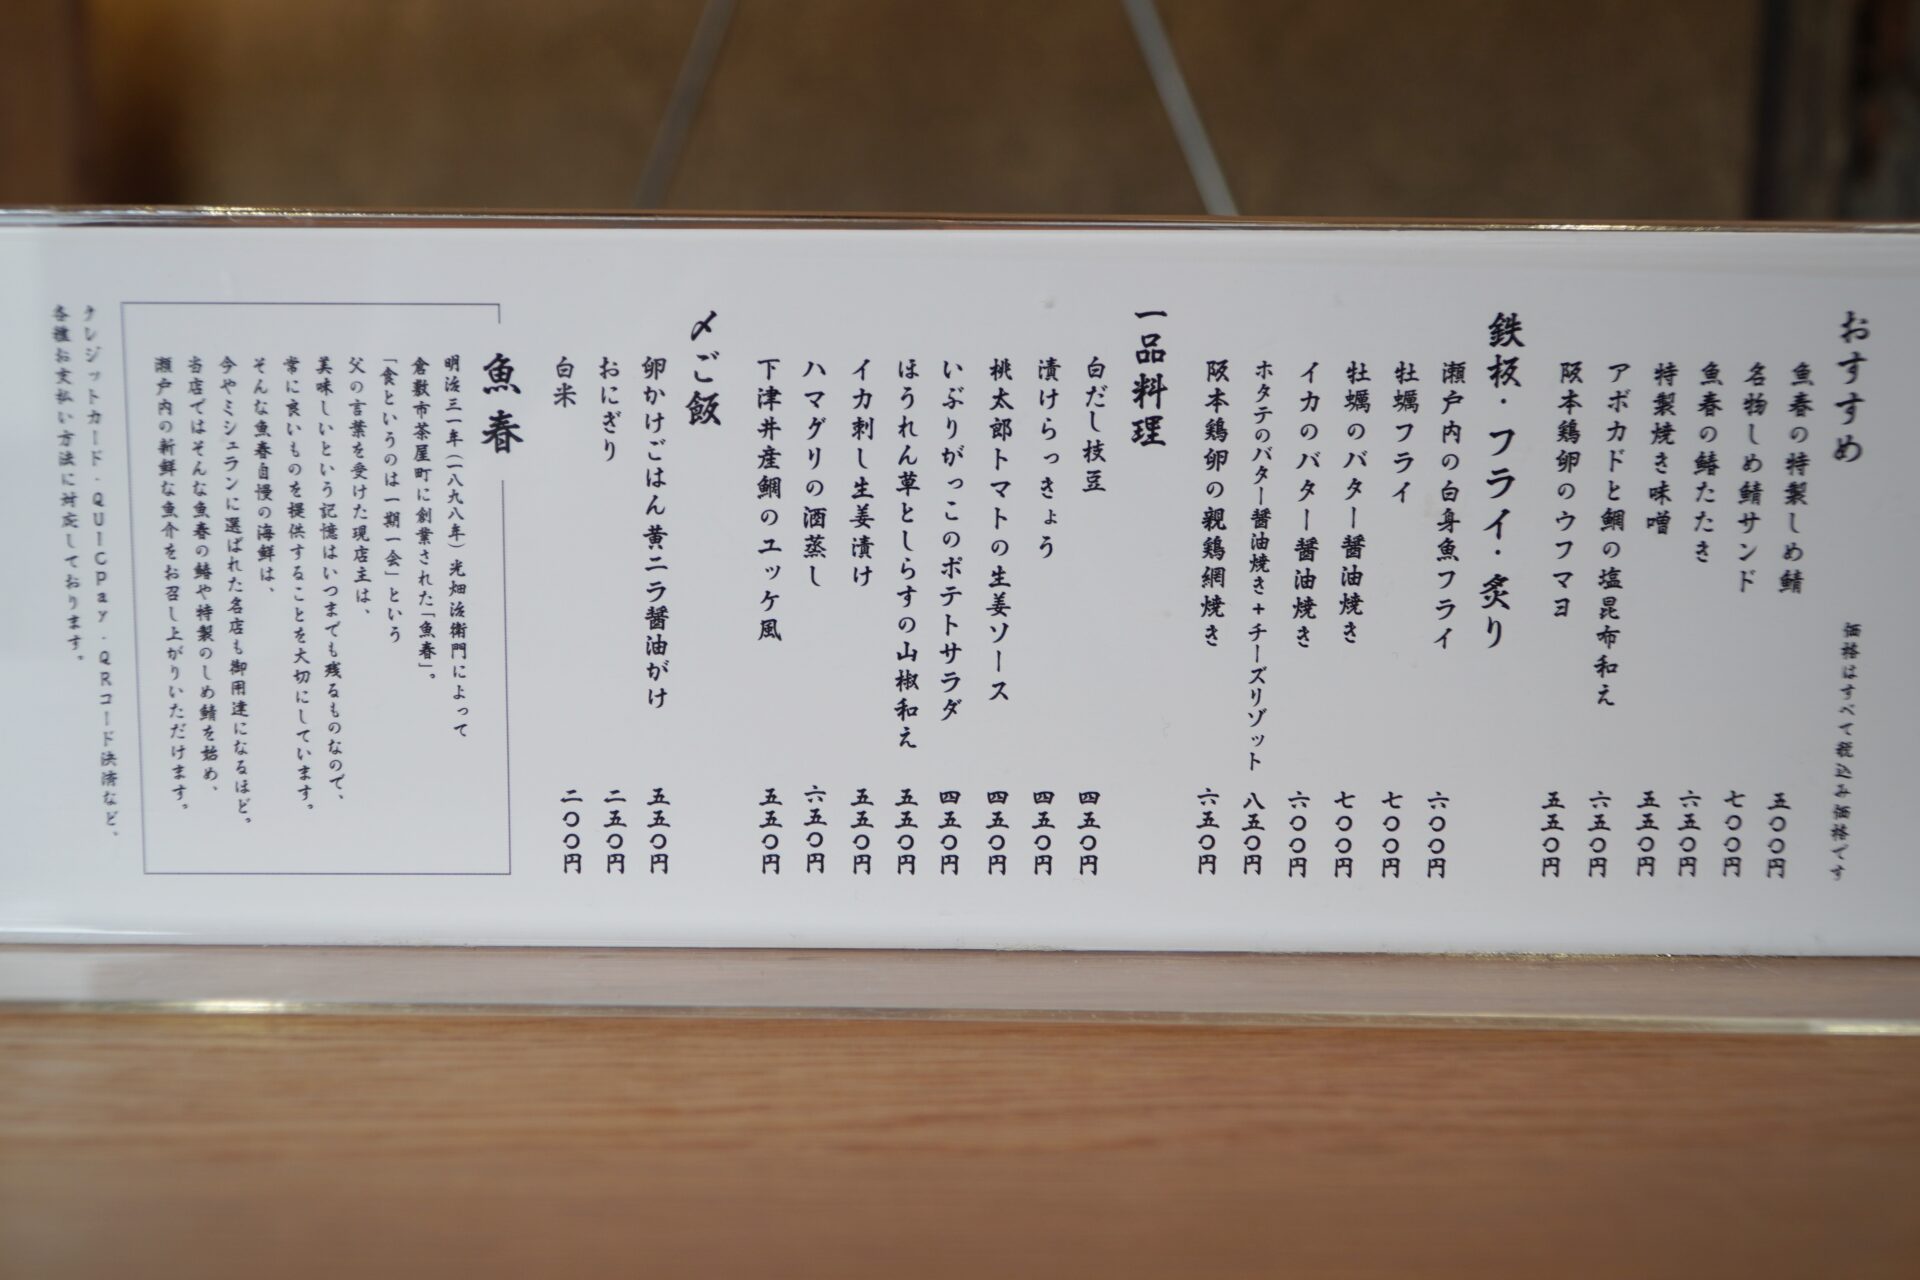 おすすめ
価格はすべて税込み価格です
魚春の特製しめ鯖 五〇〇円
名物しめ鯖サンド 七〇〇円
魚春の鰆たたき 六五〇円
特製焼き味噌 五五〇円
アボカドと鯛の塩昆布和え 六五〇円
阪本鶏卵のウフマヨ 五五〇円
鉄板・フライ・炙り
瀬戸内の白身魚フライ 六〇〇円
牡蠣フライ 七〇〇円
牡蠣のバター醤油焼き 七〇〇円
イカのバター醤油焼き 六〇〇円
ホタテのバター醤油焼き+チーズリゾット 八五〇円
阪本鶏卵の親鶏網焼き 六五〇円
一品料理
白だし枝豆 四五〇円
漬けらっきょう 四五〇円
桃太郎トマトの生姜ソース 四五〇円
いぶりがっこのポテトサラダ 四五〇円
ほうれん草としらすの山椒和え 五五〇円
イカ刺し生姜漬け 五五〇円
ハマグリの酒蒸し 六五〇円
下津井産鯛のユッケ風 五五〇円
〆ご飯
卵かけごはん黄ニラ醤油がけ 五五〇円
おにぎり 二五〇円
白米 二〇〇円
魚春
明治三一年(一八九八年)光畑治衛門によって
倉敷市茶屋町に創業された「魚春」。
「食というのは一期一会」という
父の言葉を受けた現店主は、
美味しいという記憶はいつまでも残るものなので、
常に良いものを提供することを大切にしています。
そんな魚春自慢の海鮮は、
今やミシュランに選ばれた名店も御用達になるほど。
当店ではそんな魚春の鰆や特製のしめ鯖を始め、
瀬戸内の新鮮な魚介をお召し上がりいただけます。
クレジットカード・QUICPay・QRコード決済など、
各種お支払い方法に対応しております。